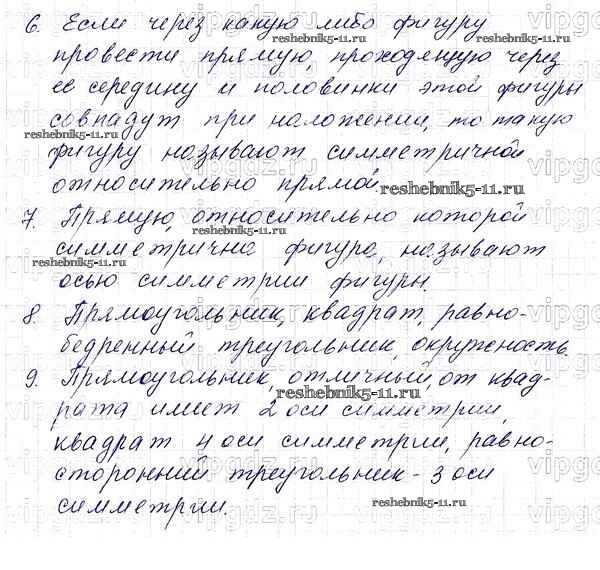 6. Если через какую либо фигуру
reshebnik5-11.ru
провести прямую, проходящую через
ее середину и половинки этой фигуры
совпадут при наложении, то такую
reshebnik5-11.ru
фигуру называют симметричной
относительно прямой.
reshebnik5-11.ru
7. Прямую, относительно которой
симметрична фигура, называют
reshebnik5-11.ru
осью симметрии фигуры.
8. Прямоугольник, квадрат, равно-
бедренный треугольник, окружность.
9. Прямоугольник, отличный от квад-
reshebnik5-11.ru
рата имеет 2 оси симметрии,
квадрат 4 оси симметрии, равно-
сторонний треугольник - 3 оси
симметрии.
reshebnik5-11.ru
vipgdz.ru